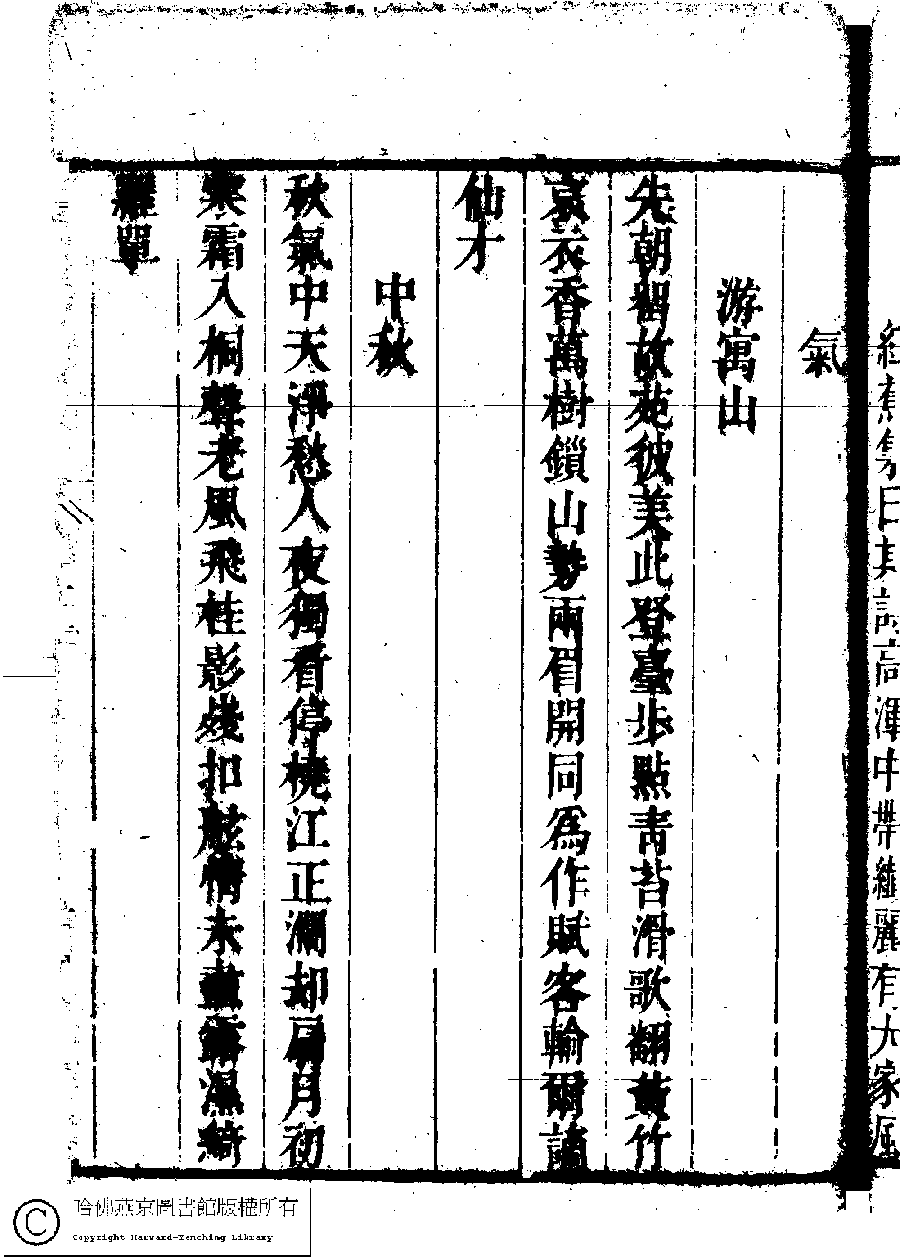 其詩高渾中帶纖麗有大家
氣
游寓山
先朝留故苑彼美此登臺步點青苔滑歌翻黃竹
哀衣香萬樹鎖山勢兩眉開同爲作賦客輸爾謫
仙才
中秋
秋氣中天淨愁人夜獨看停橈江正濶却扇月初
寒霜入桐聲老風飛桂影殘扣舷情未盡露濕綺
羅單
哈佛燕京圖書館版權所有
Copyright Harvard-Yenching Library